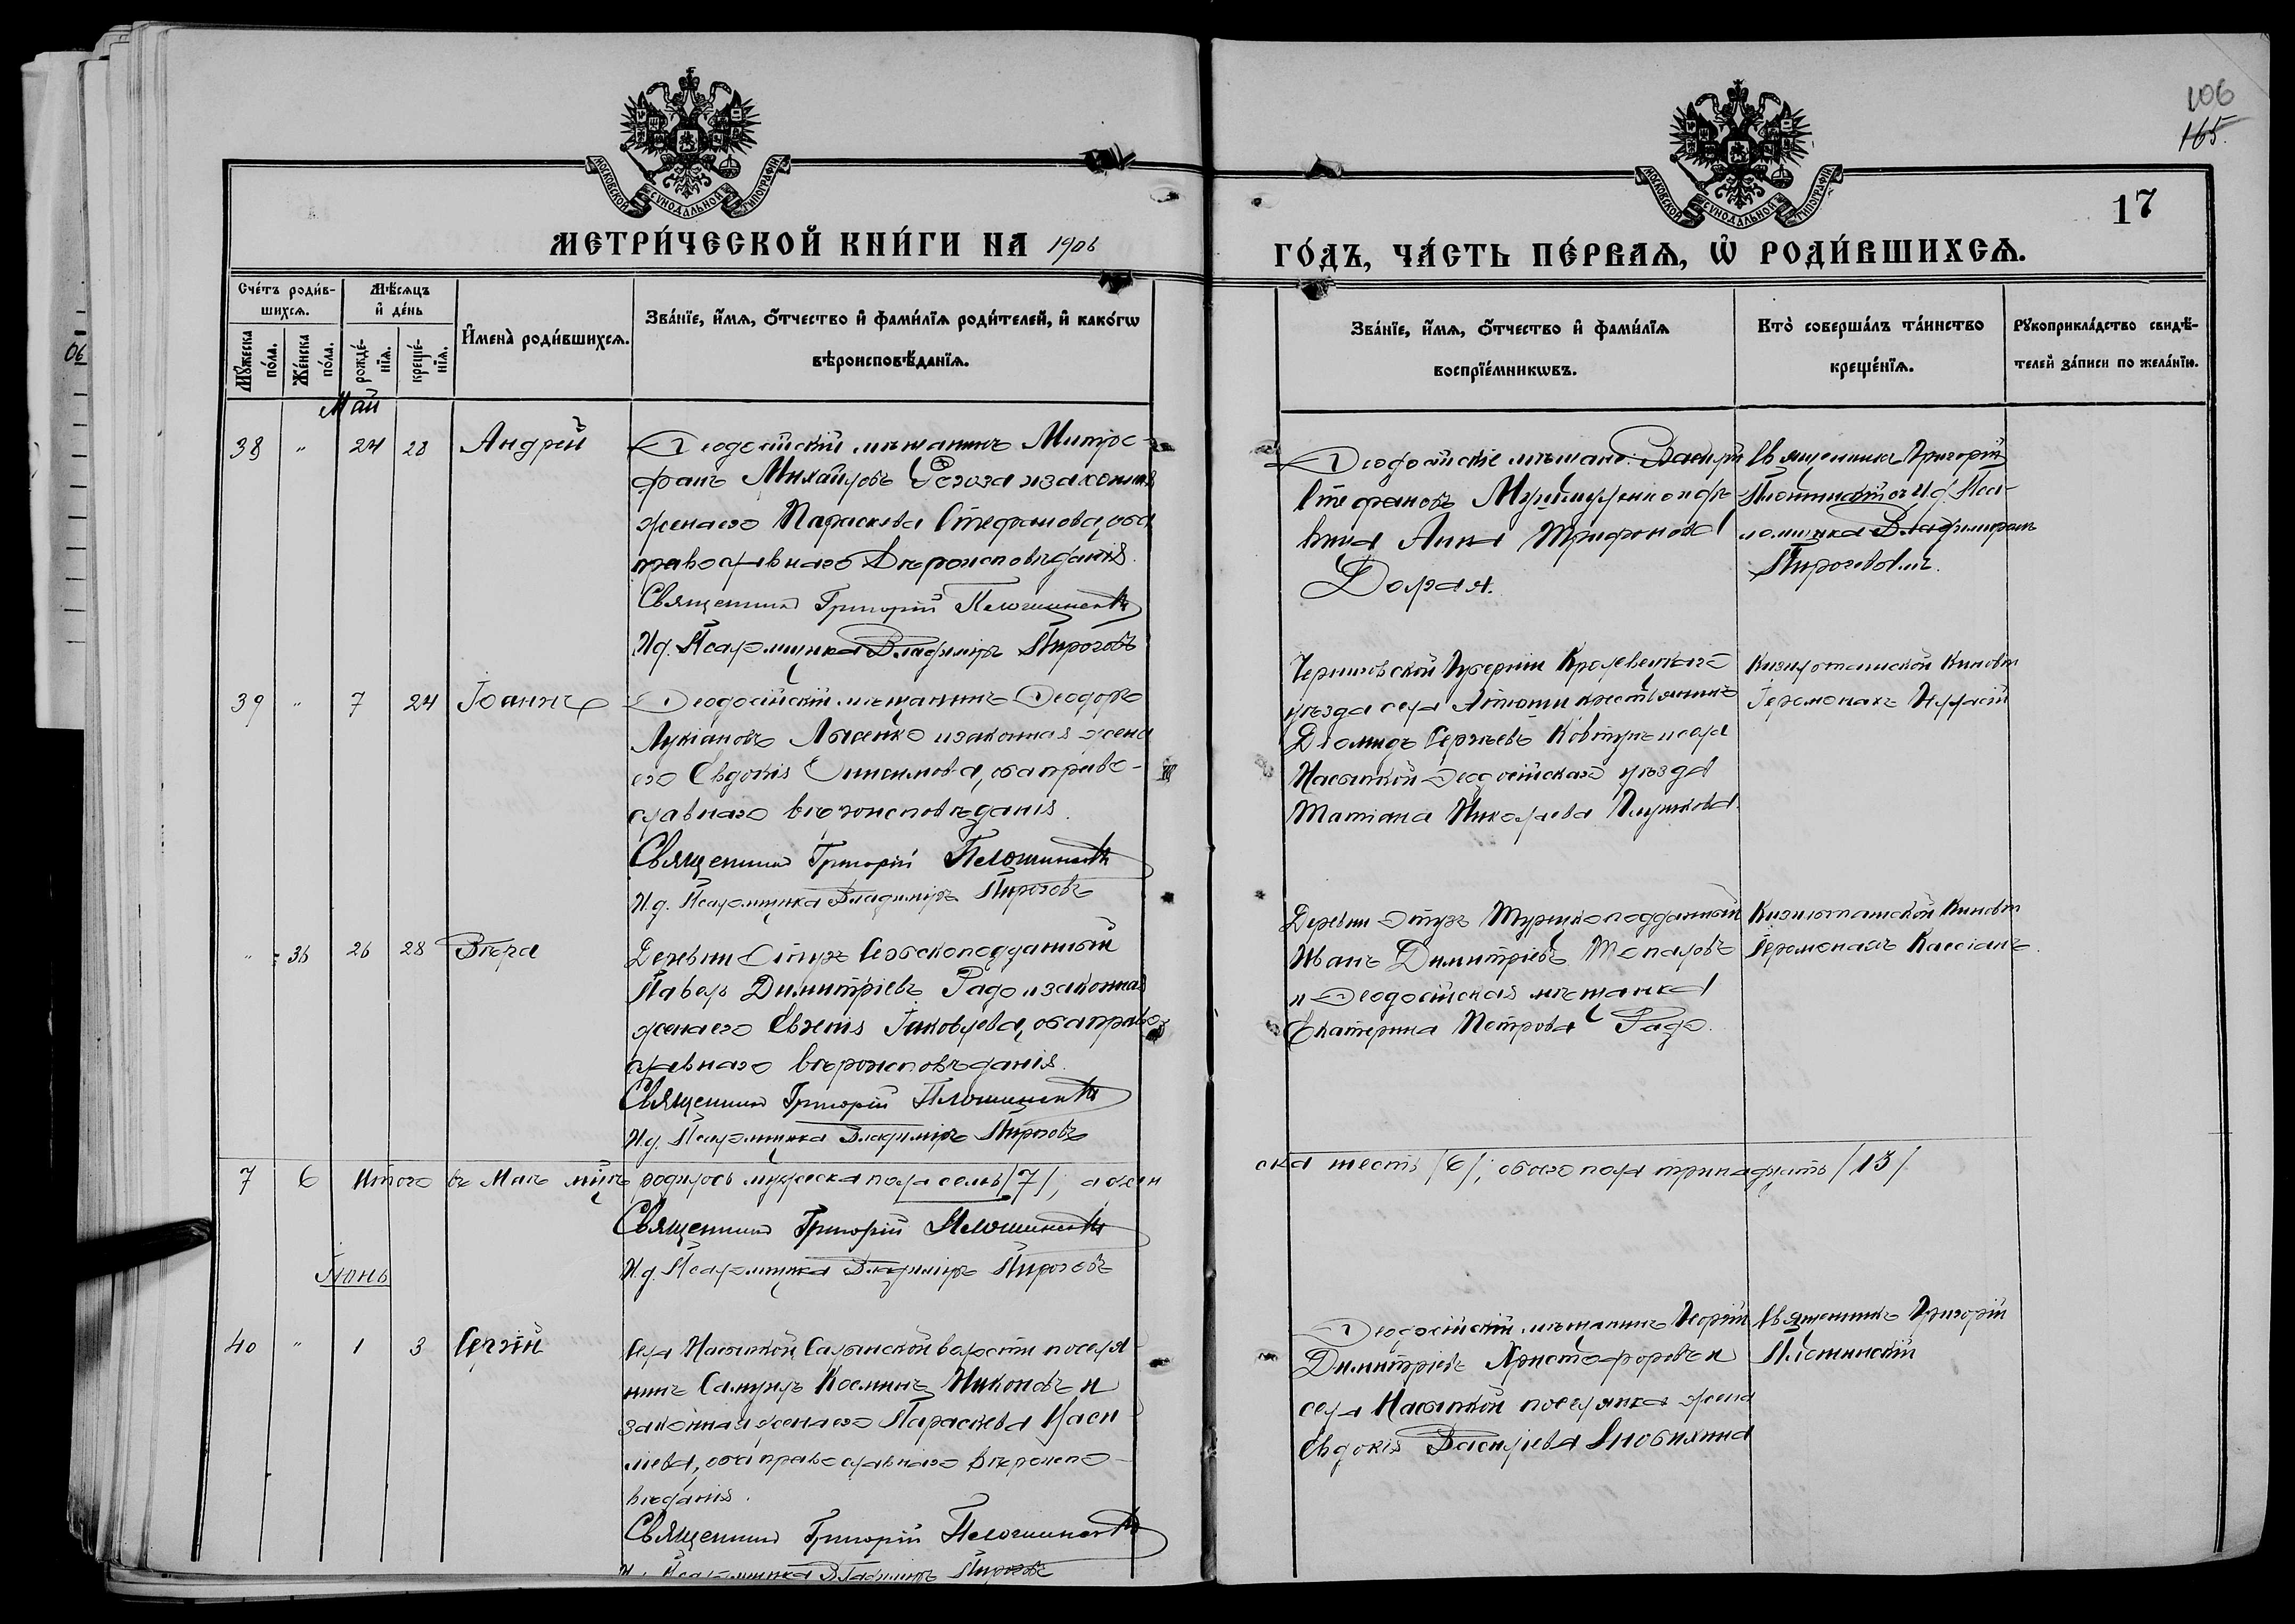 106
165.
17
МОСКОВСКОЙ СУНОДАЛЬНОЙ ТИПОГРАФІИ
МОСКОВСКОЙ СУНОДАЛЬНОЙ ТИПОГРАФІИ
МЕТРИ́ЧЕСКОЙ КНИ́ГИ НА 1906 ГО́ДЪ, ЧА́СТЬ ПЕ́РВАѦ, Ѿ РОДИ́ВШИХСѦ.
Сче́тъ роди́в-
шихсѧ.
Мꙋ́жеска по́ла.
Же́нска по́ла.
Мѣ́сѧцъ
и҆ де́нь
рожде́-
нїѧ.
креще́-
нїѧ.
И҆мена̀ роди́вшихсѧ.
Зва́нїе, и҆́мѧ, ѻ҆́тчество и҆ фами́лїѧ роди́телей, и҆ како́гѡ
вѣроисповѣ́данїѧ.
Зва́нїе, и҆́мѧ, ѻ҆́тчество и҆ фами́лїѧ
воспрїе́мникѡвъ.
Кто̀ соверша́лъ та́инство
креще́нїѧ.
Рꙋкоприкла́дство свидѣ́-
телей за́писи по жела́нїю.
Май
38 " 24 28 Андрей
Ѳеодосійскій мѣщанинъ Митро-
фанъ Михайловъ и законная
жена его Параскева Стефанова, оба
православнаго вѣроисповѣданія.
Священникъ Григорій
И.д. Псаломщика Владиміръ Пироговъ
Ѳеодосійскіе мѣщане: Василій
Стефановъ и дѣ-
вица Анна Трифонова
Священникъ Григорій
И.д. Пса-
ломщика Владиміромъ
Пироговымъ.
39 " 7 24 Іоаннъ
Ѳеодосійскій мѣщанинъ Ѳеодоръ
Лукіановъ Лысенко и законная жена
его Евдокія Онисимова, оба право-
славнаго вѣроисповѣданія.
Священникъ Григорій
И.д. Псаломщика Владиміръ Пироговъ
Черниговской губерніи Кролевецкаго
уѣзда села крестьянинъ
Діомидъ Сергѣевъ Ковтунъ и села
Насыпкой Ѳеодосійскаго уѣзда
Татіана Николаева
Кизилташской Киновіи
Іеромонахъ
" 36 26 28 Вѣра
Деревни Отузъ Сербскоподданный
Павелъ Димитріевъ Радо и законная
жена его Евгенія Іаковлева, оба право-
славнаго вѣроисповѣданія.
Священникъ Григорій
И.д. Псаломщика Владиміръ Пироговъ
Деревни Отузъ Турецкоподданный
Иванъ Димитріевъ Топаловъ
и Ѳеодосійская мѣщанка
Екатерина Петрова Радо.
Кизилташской Киновіи
Іеромонахъ Кассіанъ.
7 6 Итого въ Маѣ мцѣ родилось мужеска пола семь /7/, а жен
ска шесть /6/; обоего пола тринадцать /13/
Священникъ Григорій
И.д. Псаломщика Владиміръ Пироговъ
Іюнь
40 " 1 3 Сергій
Села Насыпкой, Салынской волости поселя-
нинъ Самуилъ Косминъ Никоновъ и
законная жена его Параскева Васи-
ліева, оба православнаго вѣроиспо-
вѣданія.
Священникъ Григорій
И.д. Псаломщика Владиміръ Пироговъ
Ѳеодосійскій мѣщанинъ Георгій
Димитріевъ Христофоровъ и
села Насыпкой поселянка жена
Евдокія Василіева
Священникъ Григорій
06